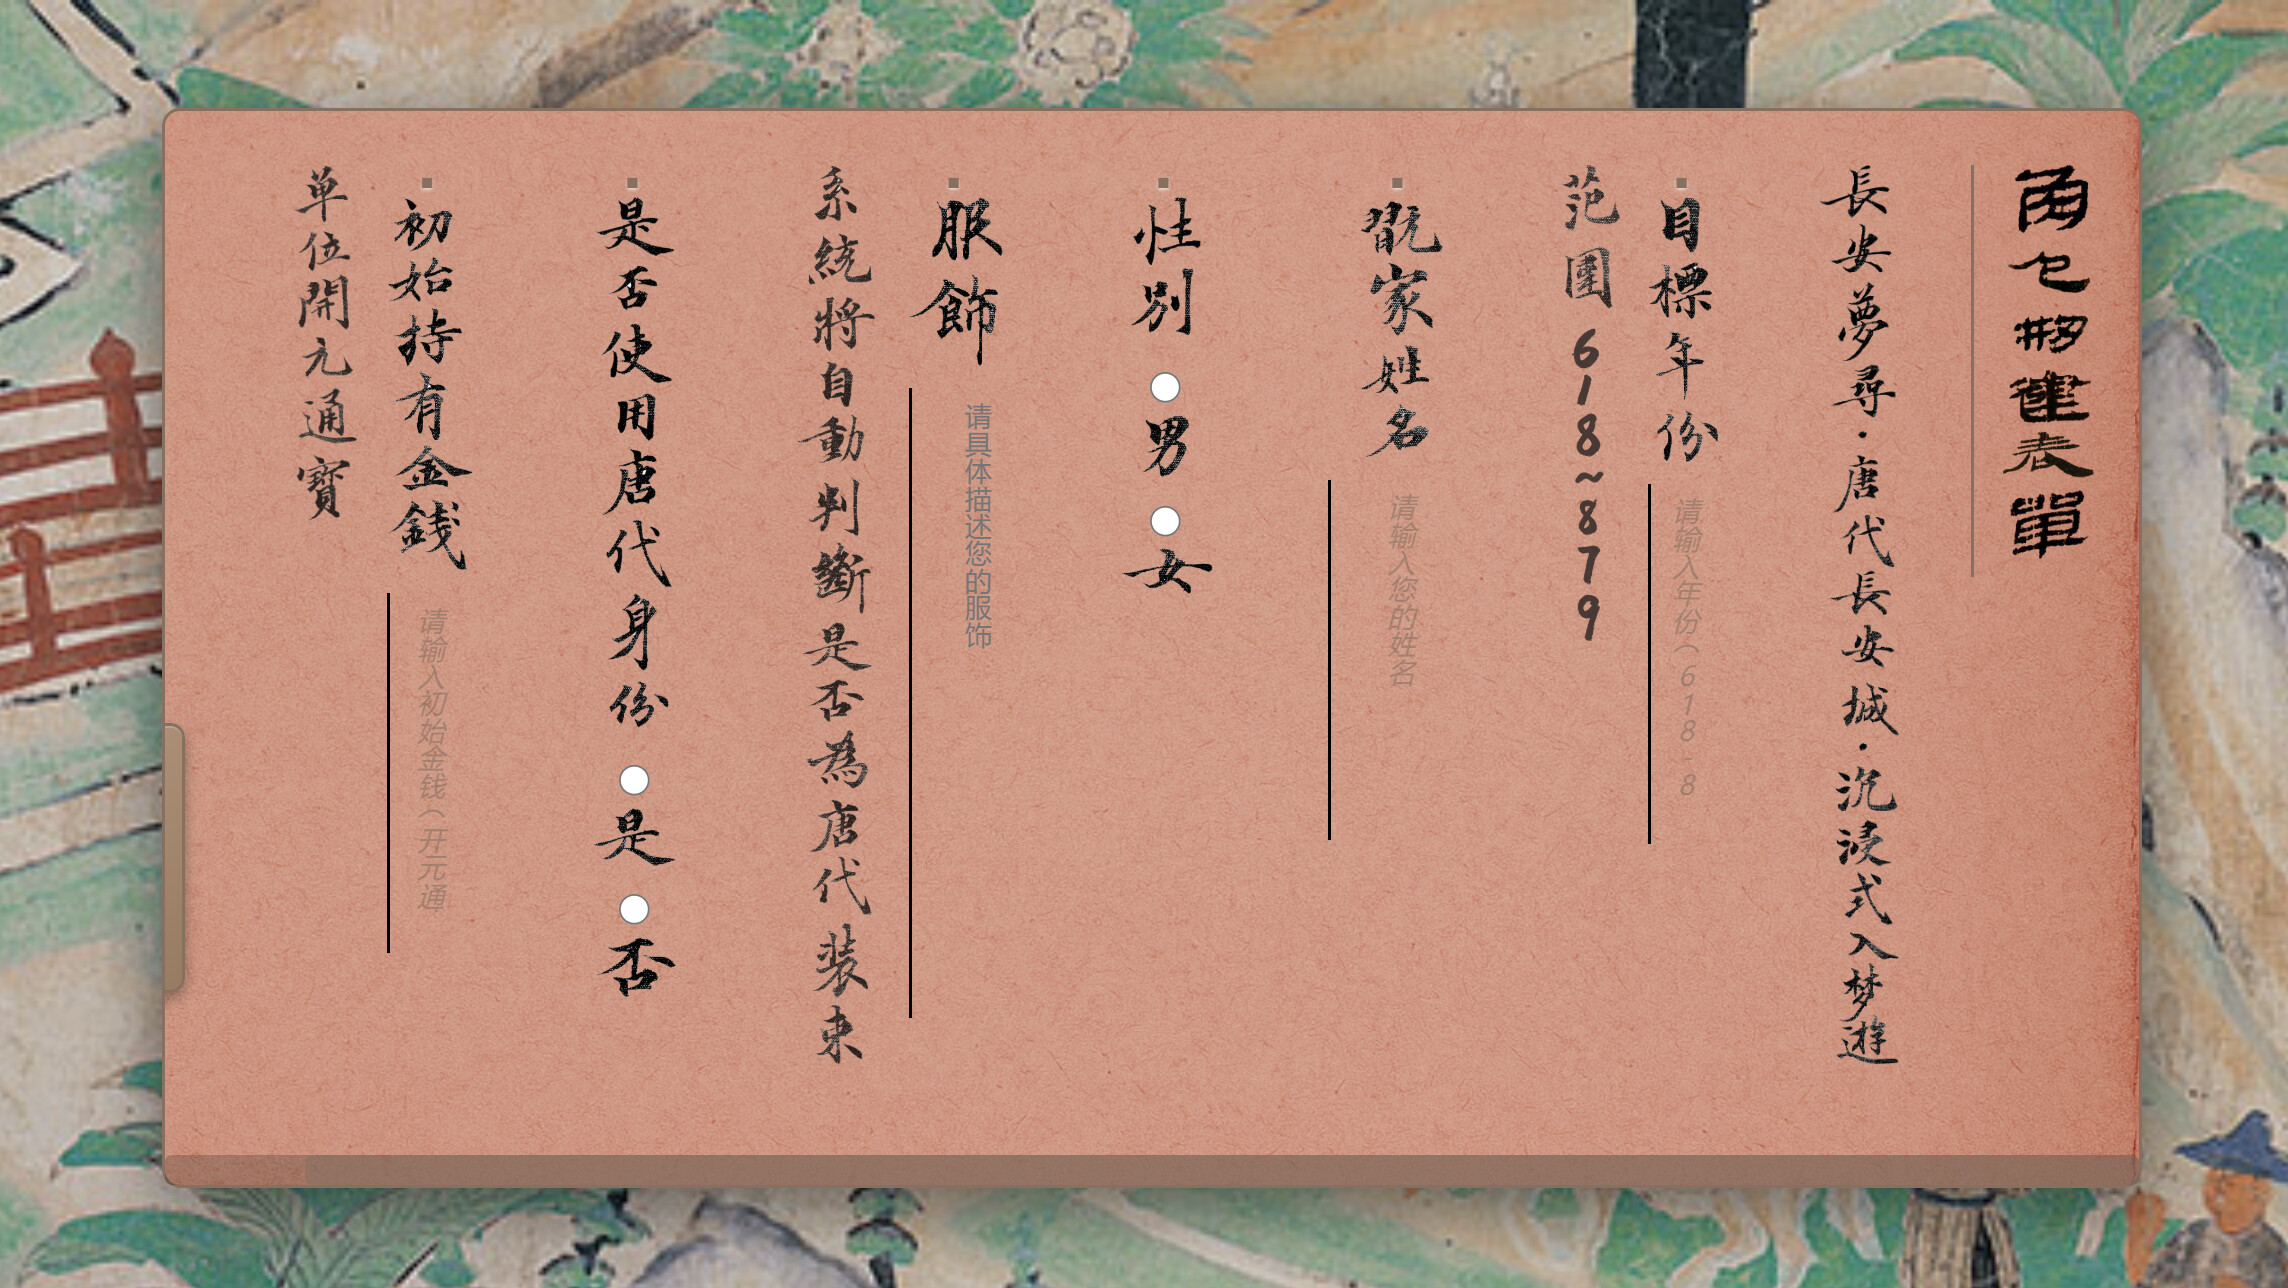 角色創建表單
長安夢尋·唐代長安城·沉浸式入梦遊
目標年份
请输入年份(618-8
范圍618~879
翫家姓名
请输入您的姓名
性別 男 女
服飾
请具体描述您的服饰
系統將自動判斷是否為唐代装束
是否使用唐代身份 是 否
初始持有金錢
请输入初始金钱(开元通
单位開元通寶